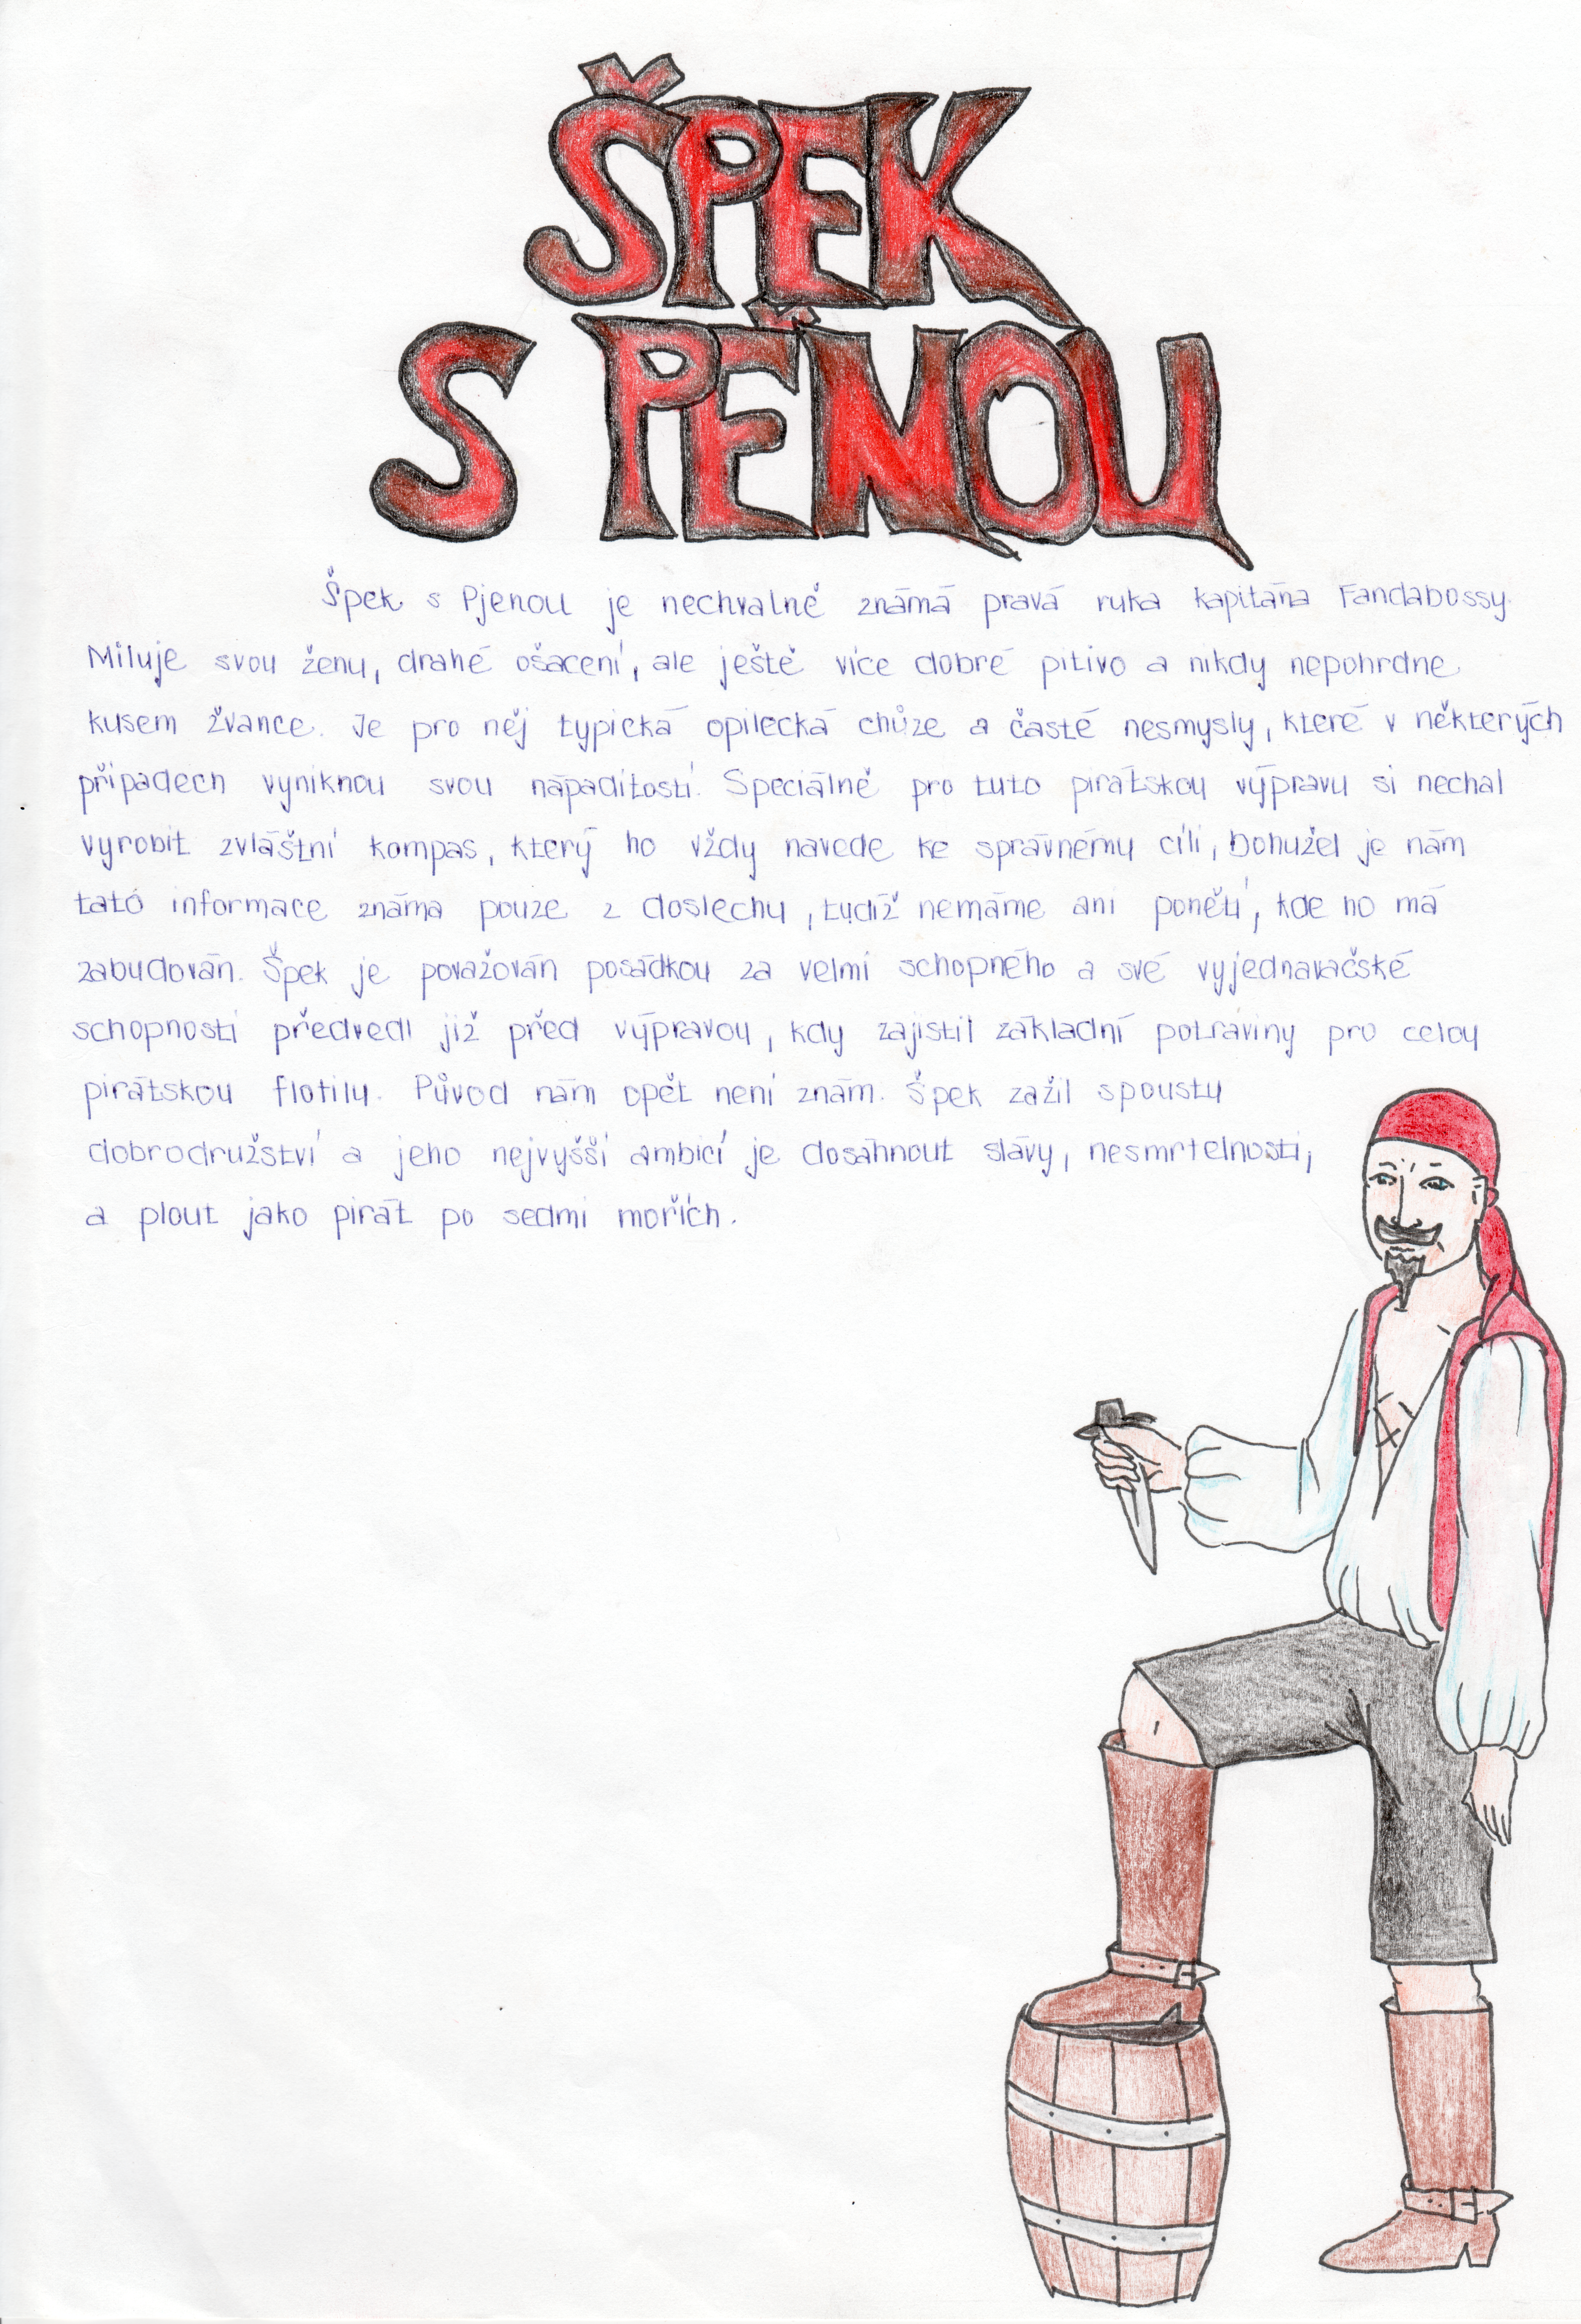 ŠPEK
S PĚNOU
Špek s Pjenou je nechvalně známá pravá ruka kapitána Fandabossy.
Miluje svou ženu, drahé ošacení, ale ještě více dobré pitivo a nikdy nepohrdne
kusem žvance. Je pro něj typická opilecká chůze a časté nesmysly, které v některých
případech vyniknou svou nápaditostí. Speciálně pro tuto pirátskou výpravu si nechal
vyrobit zvláštní kompas, který ho vždy navede ke správnému cíli, bohužel je nám
tató informace známa pouze z doslechu, tudíž nemáme ani ponětí, kde ho má
zabudován. Špek je považován posádkou za velmi schopného a své vyjednavačské
schopnosti předvedl již před výpravou, kdy zajistil základní potraviny pro celou
pirátskou flotily. Původ nám opět není znám. Špek zažil spousty
dobrodružství a jeho nejvyšší ambicí je dosáhnout slávy, nesmrtelnosti,
a plout jako pirát po sedmi mořích.